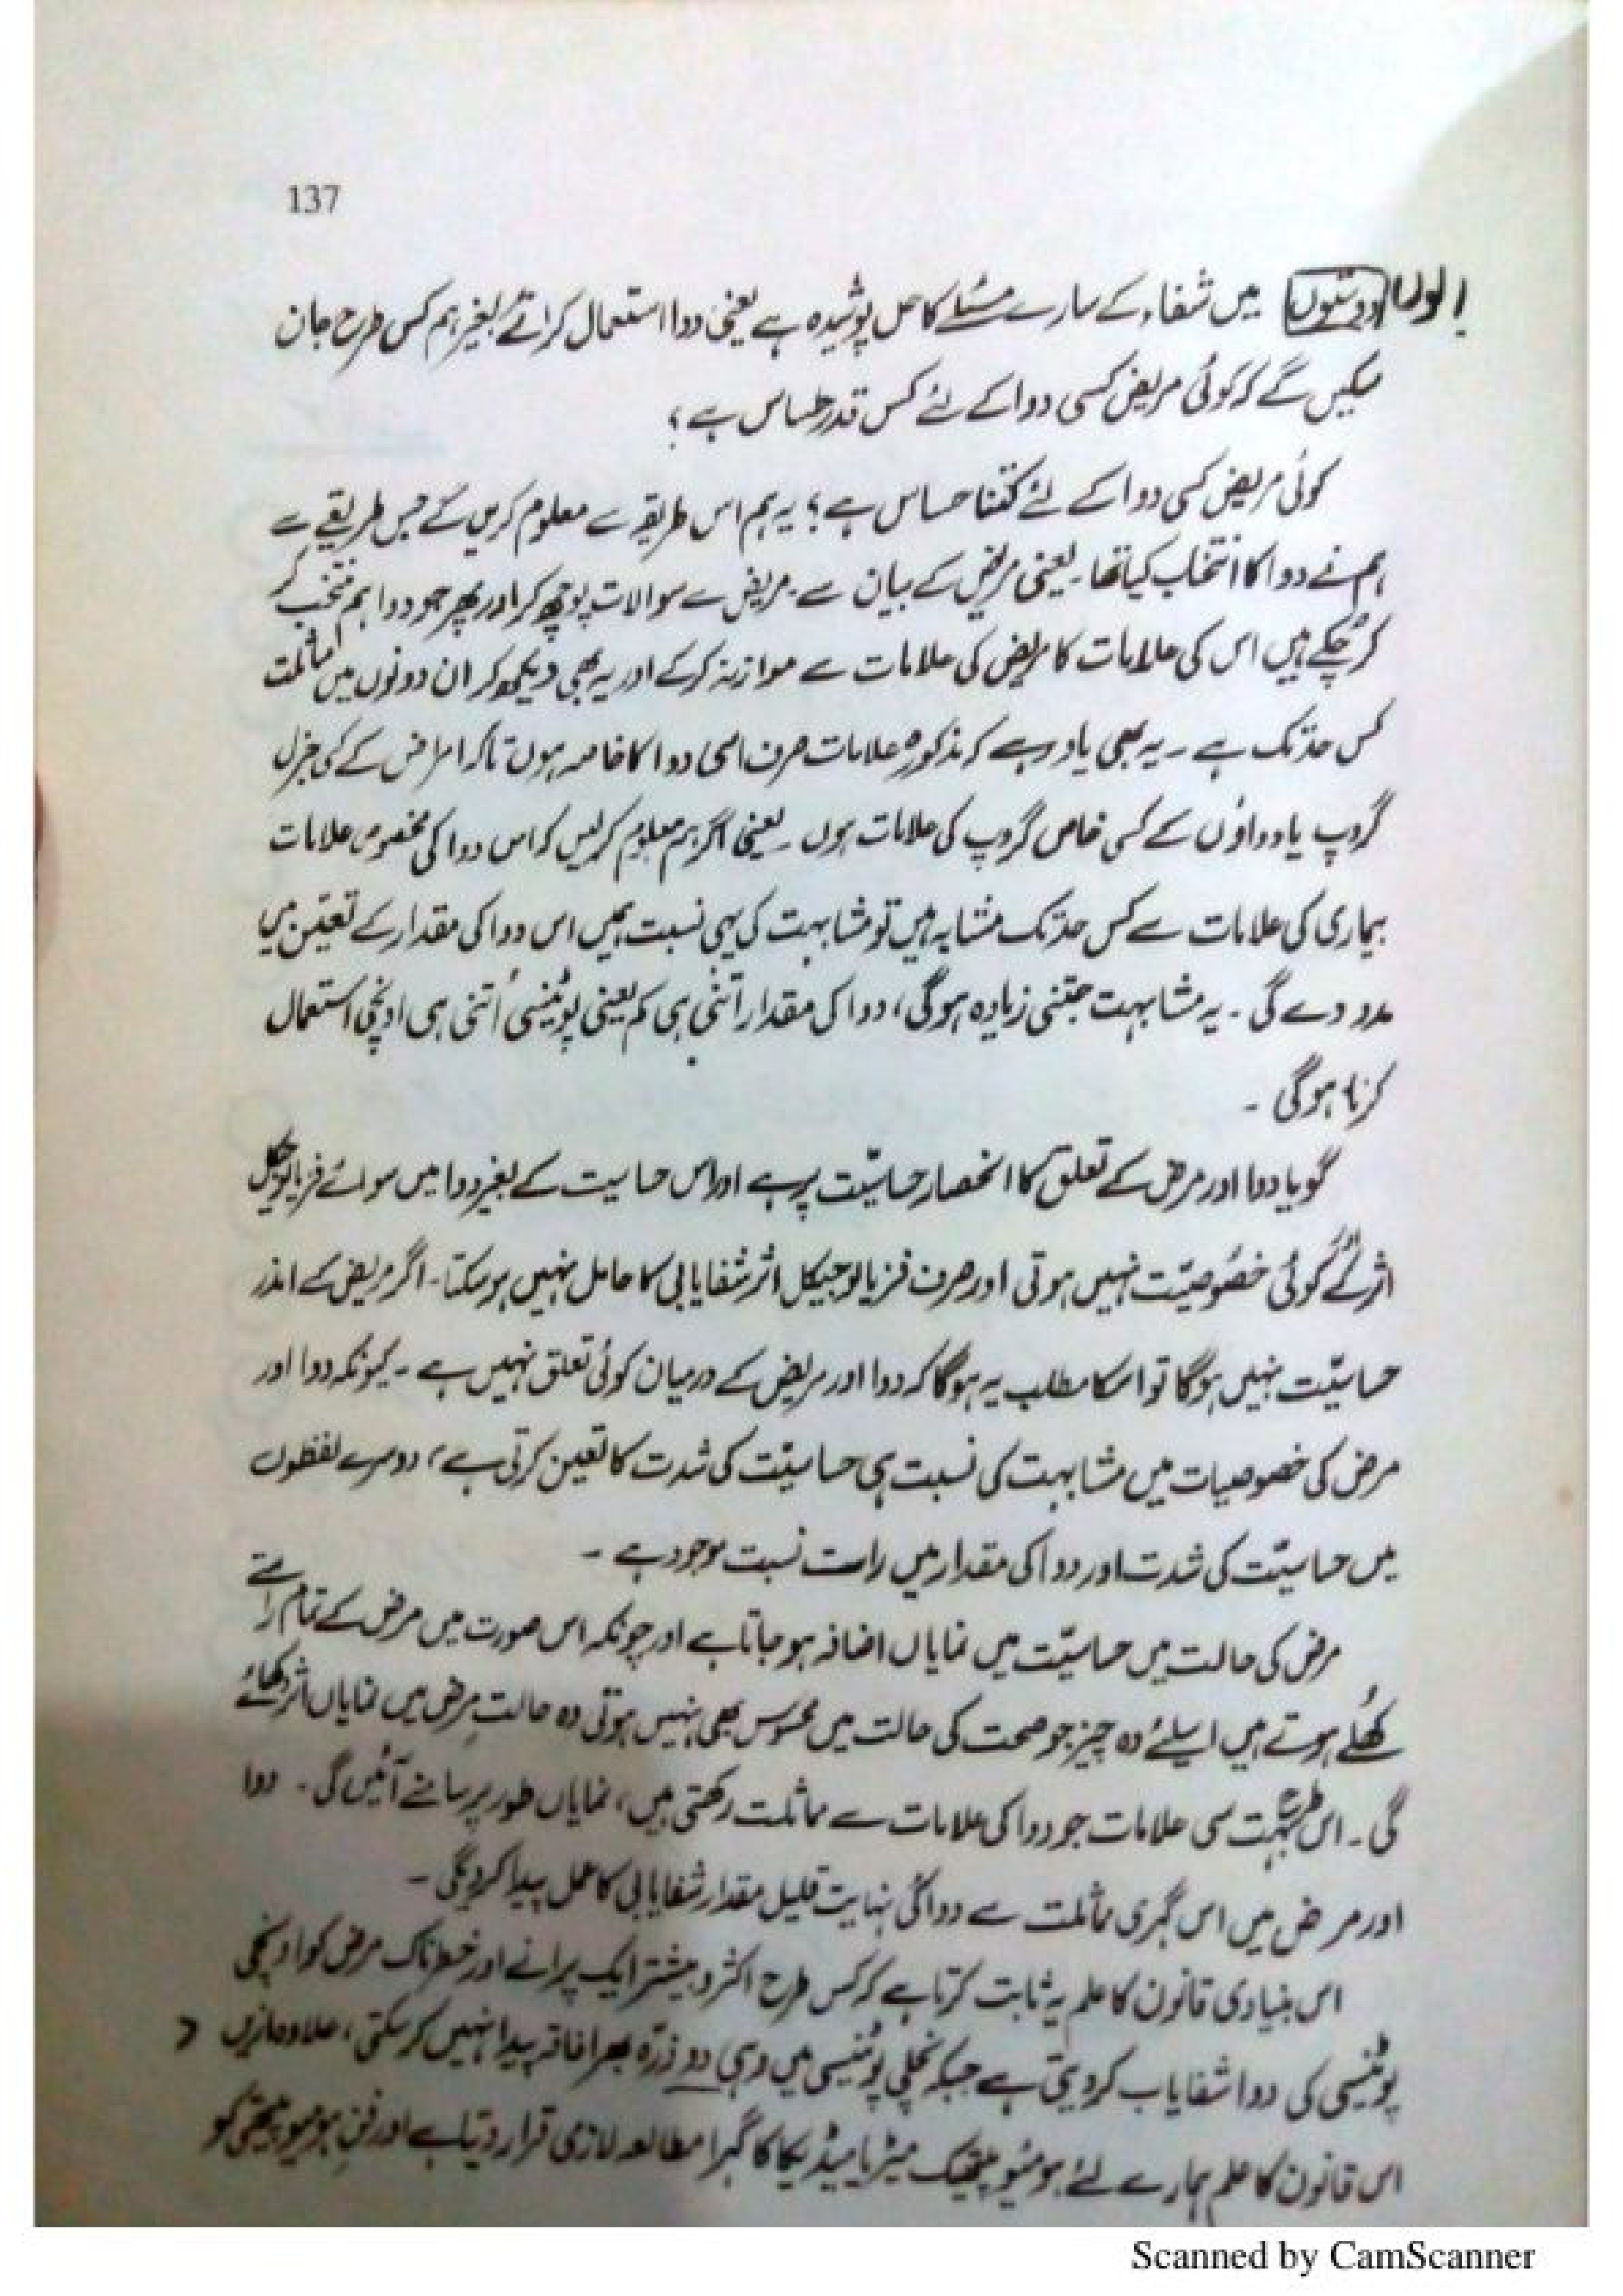 137
میں شفاء کے سارے مسئلے کا حل پوشیدہ ہے یعنی دوا استعمال کرائے بغیر ہم کس طرح جان
سکیں گے کہ کوئی مریض کسی دوا کے لئے کس قدر حساس ہے ؟
کوئی مریض کسی دوا کے لئے کتنا حساس ہے ؟ یہ ہم اس طریقے سے معلوم کریں گے جس طریقے سے
ہم نے دوا کا انتخاب کیا تھا ۔ یعنی مریض کے بیان سے ۔ مریض سے سوالات پوچھ کر اور پھر جو دوا ہم منتخب کر
کر چکے ہیں اس کی علامات کا مریض کی علامات سے موازنہ کر کے اور یہ بھی دیکھو کر ان دونوں میں مماثلت
کس حد تک ہے ۔ یہ بھی یاد رہے کہ مذکورہ علامات صرف اسی دوا کا خاصہ ہوں نا کہ امراض کے کسی جنرل
گروپ یا دواؤں کے کسی خاص گروپ کی علامات ہوں ۔ یعنی اگر ہم معلوم کر لیں کہ اس دوا کی مخصوص علامات
بیماری کی علامات سے کس حد تک مشابہ ہیں تو مشابہت کی یہی نسبت ہمیں اس دوا کی مقدار کے تعیّن میں
مدد دے گی ۔ یہ مشابہت جتنی زیادہ ہوگی ، دوا کی مقدار اتنی ہی کم یعنی پوٹینسی اُتنی ہی اونچی استعمال
کرنا ہوگی ۔
گویا دوا اور مرض کے تعلق کا انحصار حساسیّت پر ہے اور اس حساسیت کے بغیر دوا میں سوائے فزیالوجیکل
اثر کے کوئی اور خصُوصیّت نہیں ہوتی اور صرف فزیالوجیکل اثر شفایابی کا حامل نہیں ہو سکتا ۔ اگر مریض کے اندر
حساسیّت نہیں ہوگا تو اسکا مطلب یہ ہوگا کہ دوا اور مریض کے درمیان کوئی تعلق نہیں ہے ۔ کیونکہ دوا اور
مرض کی خصوصیات میں مشابہت کی نسبت ہی حساسیّت کی شدت کا تعین کرتی ہے ، دوسرے لفظوں
میں حساسیّت کی شدت اور دوا کی مقدار میں راست نسبت موجود ہے ۔
مرض کی حالت میں حساسیّت میں نمایاں اضافہ ہو جاتا ہے اور چونکہ اس صورت میں مرض کے تمام راستے
کھُلے ہوتے ہیں اسلئے وہ چیز جو صحت کی حالت میں محسوس بھی نہیں ہوتی وہ حالتِ مرض میں نمایاں اثر دکھائے
گی ۔ اس طرح بہت سی علامات جو دوا کی علامات سے مماثلت رکھتی ہیں ، نمایاں طور پر سامنے آئیں گی ۔ دوا
اور مرض میں اس گہری مماثلت سے دوا کی نہایت قلیل مقدار شفایابی کا عمل پیدا کردیگی ۔
اس بنیادی قانون کا علم یہ ثابت کرتا ہے کہ کس طرح اکثر و بیشتر ایک پرانے اور خطرناک مرض کو اونچی
پوٹینسی کی دوا شفایاب کر دیتی ہے جبکہ نچلی پوٹینسی میں وہی دو ذرّہ بھر افاقہ پیدا نہیں کر سکتی ، علاوہ ازیں
اس قانون کا علم ہمارے لئے ہومیوپیتھک میٹریا میڈیکا کا گہرا مطالعہ لازمی قرار دیتا ہے اور فنِ ہومیوپیتھی کو
Scanned by CamScanner